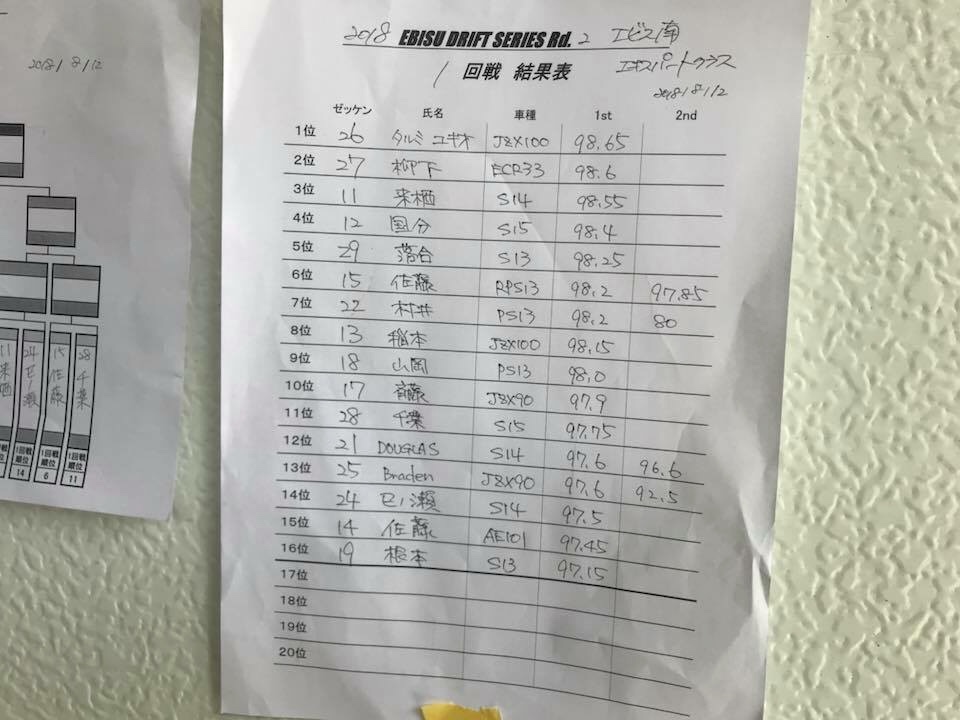 2018/8/12
11 来栖
24 巳ノ瀬
15 佐藤
28 千葉
1回戦順位 14
1回戦順位 6
1回戦順位 11
2018 EBISU DRIFT SERIES Rd. 2 エビス南
1 回戦 結果表 エキスパートクラス
2018/8/12
ゼッケン 氏名 車種 1st 2nd
1位 26 タルミ ユキオ JZX100 98.65
2位 27 柳下 ECR33 98.6
3位 11 来栖 S14 98.55
4位 12 国分 S15 98.4
5位 29 落合 S13 98.25
6位 15 佐藤 RPS13 98.2 97.85
7位 22 村井 PS13 98.2 80
8位 13 稲本 JZX100 98.15
9位 18 山岡 PS13 98.0
10位 17 斉藤 JZX90 97.9
11位 28 千葉 S15 97.75
12位 21 DOUGLAS S14 97.6 96.6
13位 25 Braden JZX90 97.6 92.5
14位 24 巳ノ瀬 S14 97.5
15位 14 佐藤 AE101 97.45
16位 19 根本 S13 97.15
17位
18位
19位
20位